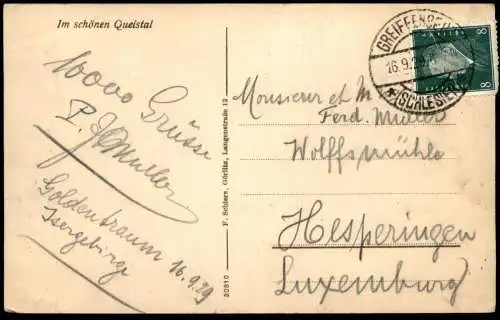 Im schönen Queistal
10000 Grüsse
P. J. Muller
Goldentraum 16.9.29
Isergebirge
F. Schiers, Görlitz, Langenstraße 12
30810
GREIFFENBERG
16.9.29
*(SCHLESIEN)
8
8
Monsieur et M
Ferd. Muller
Wolffsmühle
Hesperingen
Luxemburg